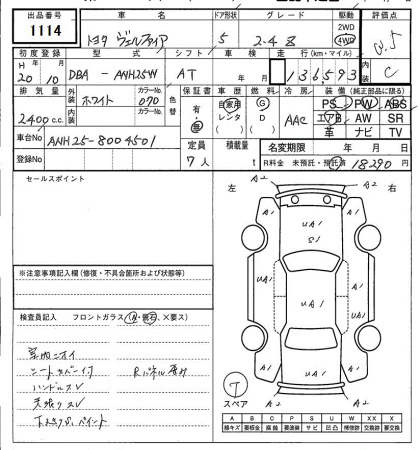 出品番号 車名 ドア形状 グレード 駆動 評価点
1114 トヨタ ヴェルファイア 5 2.4 Z 2WD 4WD
初度登録 型式 シフト 車検 走行(km・マイル) 内装 C
H 20年 10月 DBA - ANH25W AT 年 月 136593
排気量 外装 カラーNo. 色替 保証書 車歴 燃料 冷房 装備(純正部品に限る)
2400 c.c. ホワイト 070 有・無 自家用 レンタ G D AAC PS PW ABS
内装 カラーNo. エアB AW SR
車台No ANH25-8004501 革 ナビ TV
登録No 定員 7人 積載量 t 名変期限 年 月 日
R料金 未預託・預託済 18290 円
セールスポイント
左 右
A2 A2
A1 UA1 A1
S1
UA1 UA1 UA1
A1 UA1 A1
A2 A2
※注意事項記入欄(修復・不具合箇所および状態等)
検査員記入 フロントガラス(A・飛石、×要ス)
室内ニオイ
シートカバー付 Rパネル歪み
ハンドルスレ
スペア
A B C P S U W X XX
線キズ 要板金 腐蝕 要塗装 サビ 凹凸 補修跡 交換跡 要交換